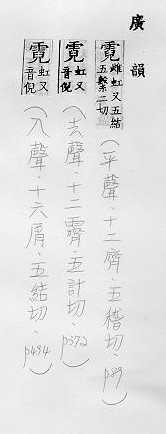 廣韻
霓雌虹又五結五繫二切(平聲.十二齊.五稽切.p89)
霓虹又音倪(去聲.十二霽.五計切.p372)
霓虹又音倪(入聲.十六屑.五結切.p494)